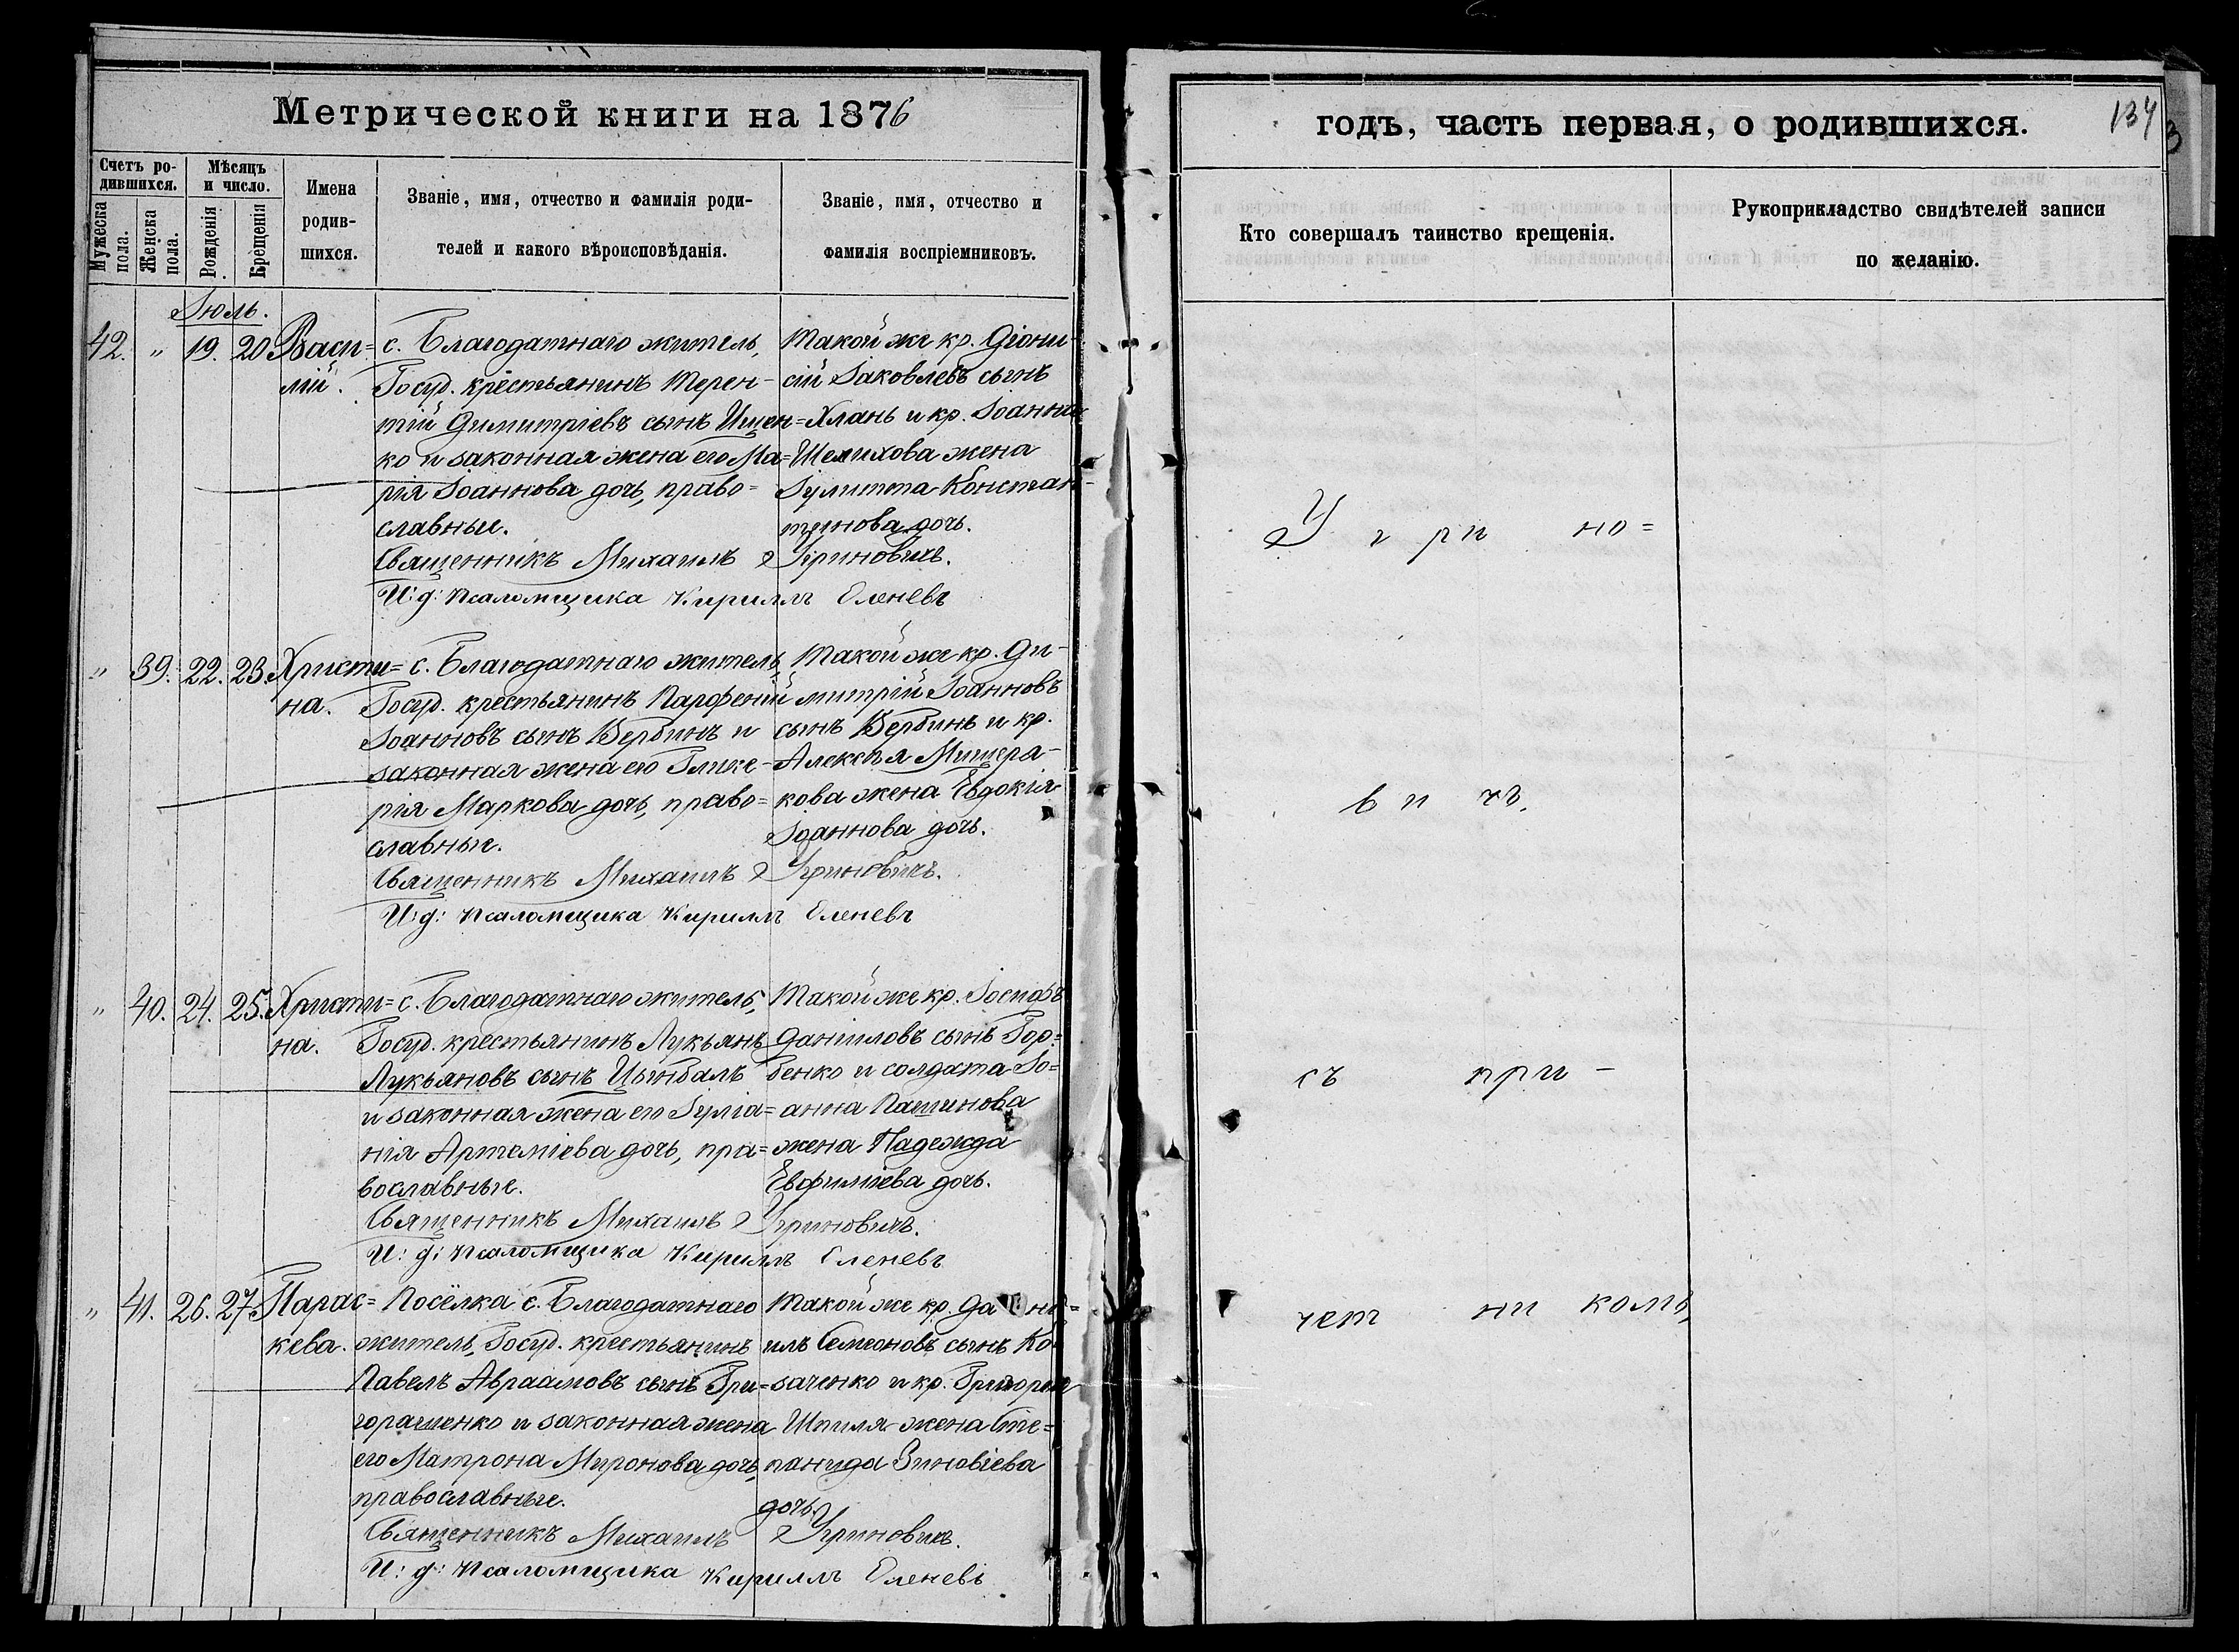 Метрической книги на 1876
Счетъ ро-
дившихся.
Мужеска
пола.
Женска
пола.
Мѣсяцъ
и число.
Рожденія
Крещенія
Имена
родив-
шихся.
Званіе, имя, отчество и фамилія роди-
телей и какого вѣроисповѣданія.
Званіе, имя, отчество и
фамилія воспріемниковъ.
Іюль.
42. " 19. 20 Васи=
лій.
с. Благодатнаго житель,
Госуд. крестьянинъ Терен-
тій Димитріевъ сынъ Ищен=
ко и законная жена его Ма=
рія Іоаннова дочь, право=
славные.
Такой же кр. Діони-
сій Іаковлевъ сынъ
Хлань и кр. Іоанна
Шелихова жена
Іулитта Констан-
тинова дочь.
Священникъ Михаилъ Угриновичъ.
И: д: псаломщика Кириллъ Еленевъ
" 39. 22. 23. Христи=
на.
с. Благодатнаго житель,
Госуд. крестьянинъ Парфеній
Іоанновъ сынъ Вербинъ и
законная жена его Глике-
рія Маркова дочь, право=
славные.
Такой же кр. Ди-
митрій Іоанновъ
сынъ Вербинъ и кр.
Алексѣя Мищеря-
кова жена Евдокія
Іоаннова дочь.
Священникъ Михаилъ Угриновичъ.
И: д: псаломщика Кириллъ Еленевъ
" 40. 24. 25. Христи=
на.
с. Благодатнаго житель,
Госуд. крестьянинъ Лукьянъ
Лукьяновъ сынъ Цымбалъ
и законная жена его Іуліа=
нія Артеміева дочь, пра=
вославные.
Такой же кр. Іосифъ
Даніиловъ сынъ Гор=
бенко и солдата Іо=
анна Пашинова
жена Надежда
Евфиміева дочь.
Священникъ Михаилъ Угриновичъ.
И: д: псаломщика Кириллъ Еленевъ
" 41. 26. 27. Парас=
кева.
Посёлка с. Благодатнаго
житель, Госуд. крестьянинъ
Павелъ Авраамовъ сынъ Гри=
горашенко и законная жена
его Матрона Миронова дочь,
православные.
Такой же кр. Дани=
илъ Семеоновъ сынъ Ко-
заченко и кр. Григорія
Шпиля жена Сте=
панида Зиновіева
дочь.
Священникъ Михаилъ Угриновичъ.
И: д: псаломщика Кириллъ Еленевъ
годъ, часть первая, о родившихся.
134
Кто совершалъ таинство крещенія.
Рукоприкладство свидѣтелей записи
по желанію.
У г ри но=
в и чъ,
съ при-
чет ни комъ,